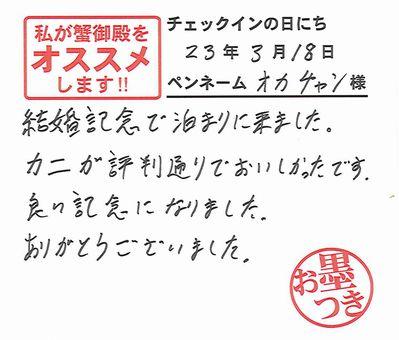 私が蟹御殿を
オススメ
します!!
チェックインの日にち
23年3月18日
ペンネーム オカチャン様
結婚記念で泊まりに来ました。
カニが評判通りでおいしかったです.
良い記念になりました.
ありがとうございました。
お墨つき